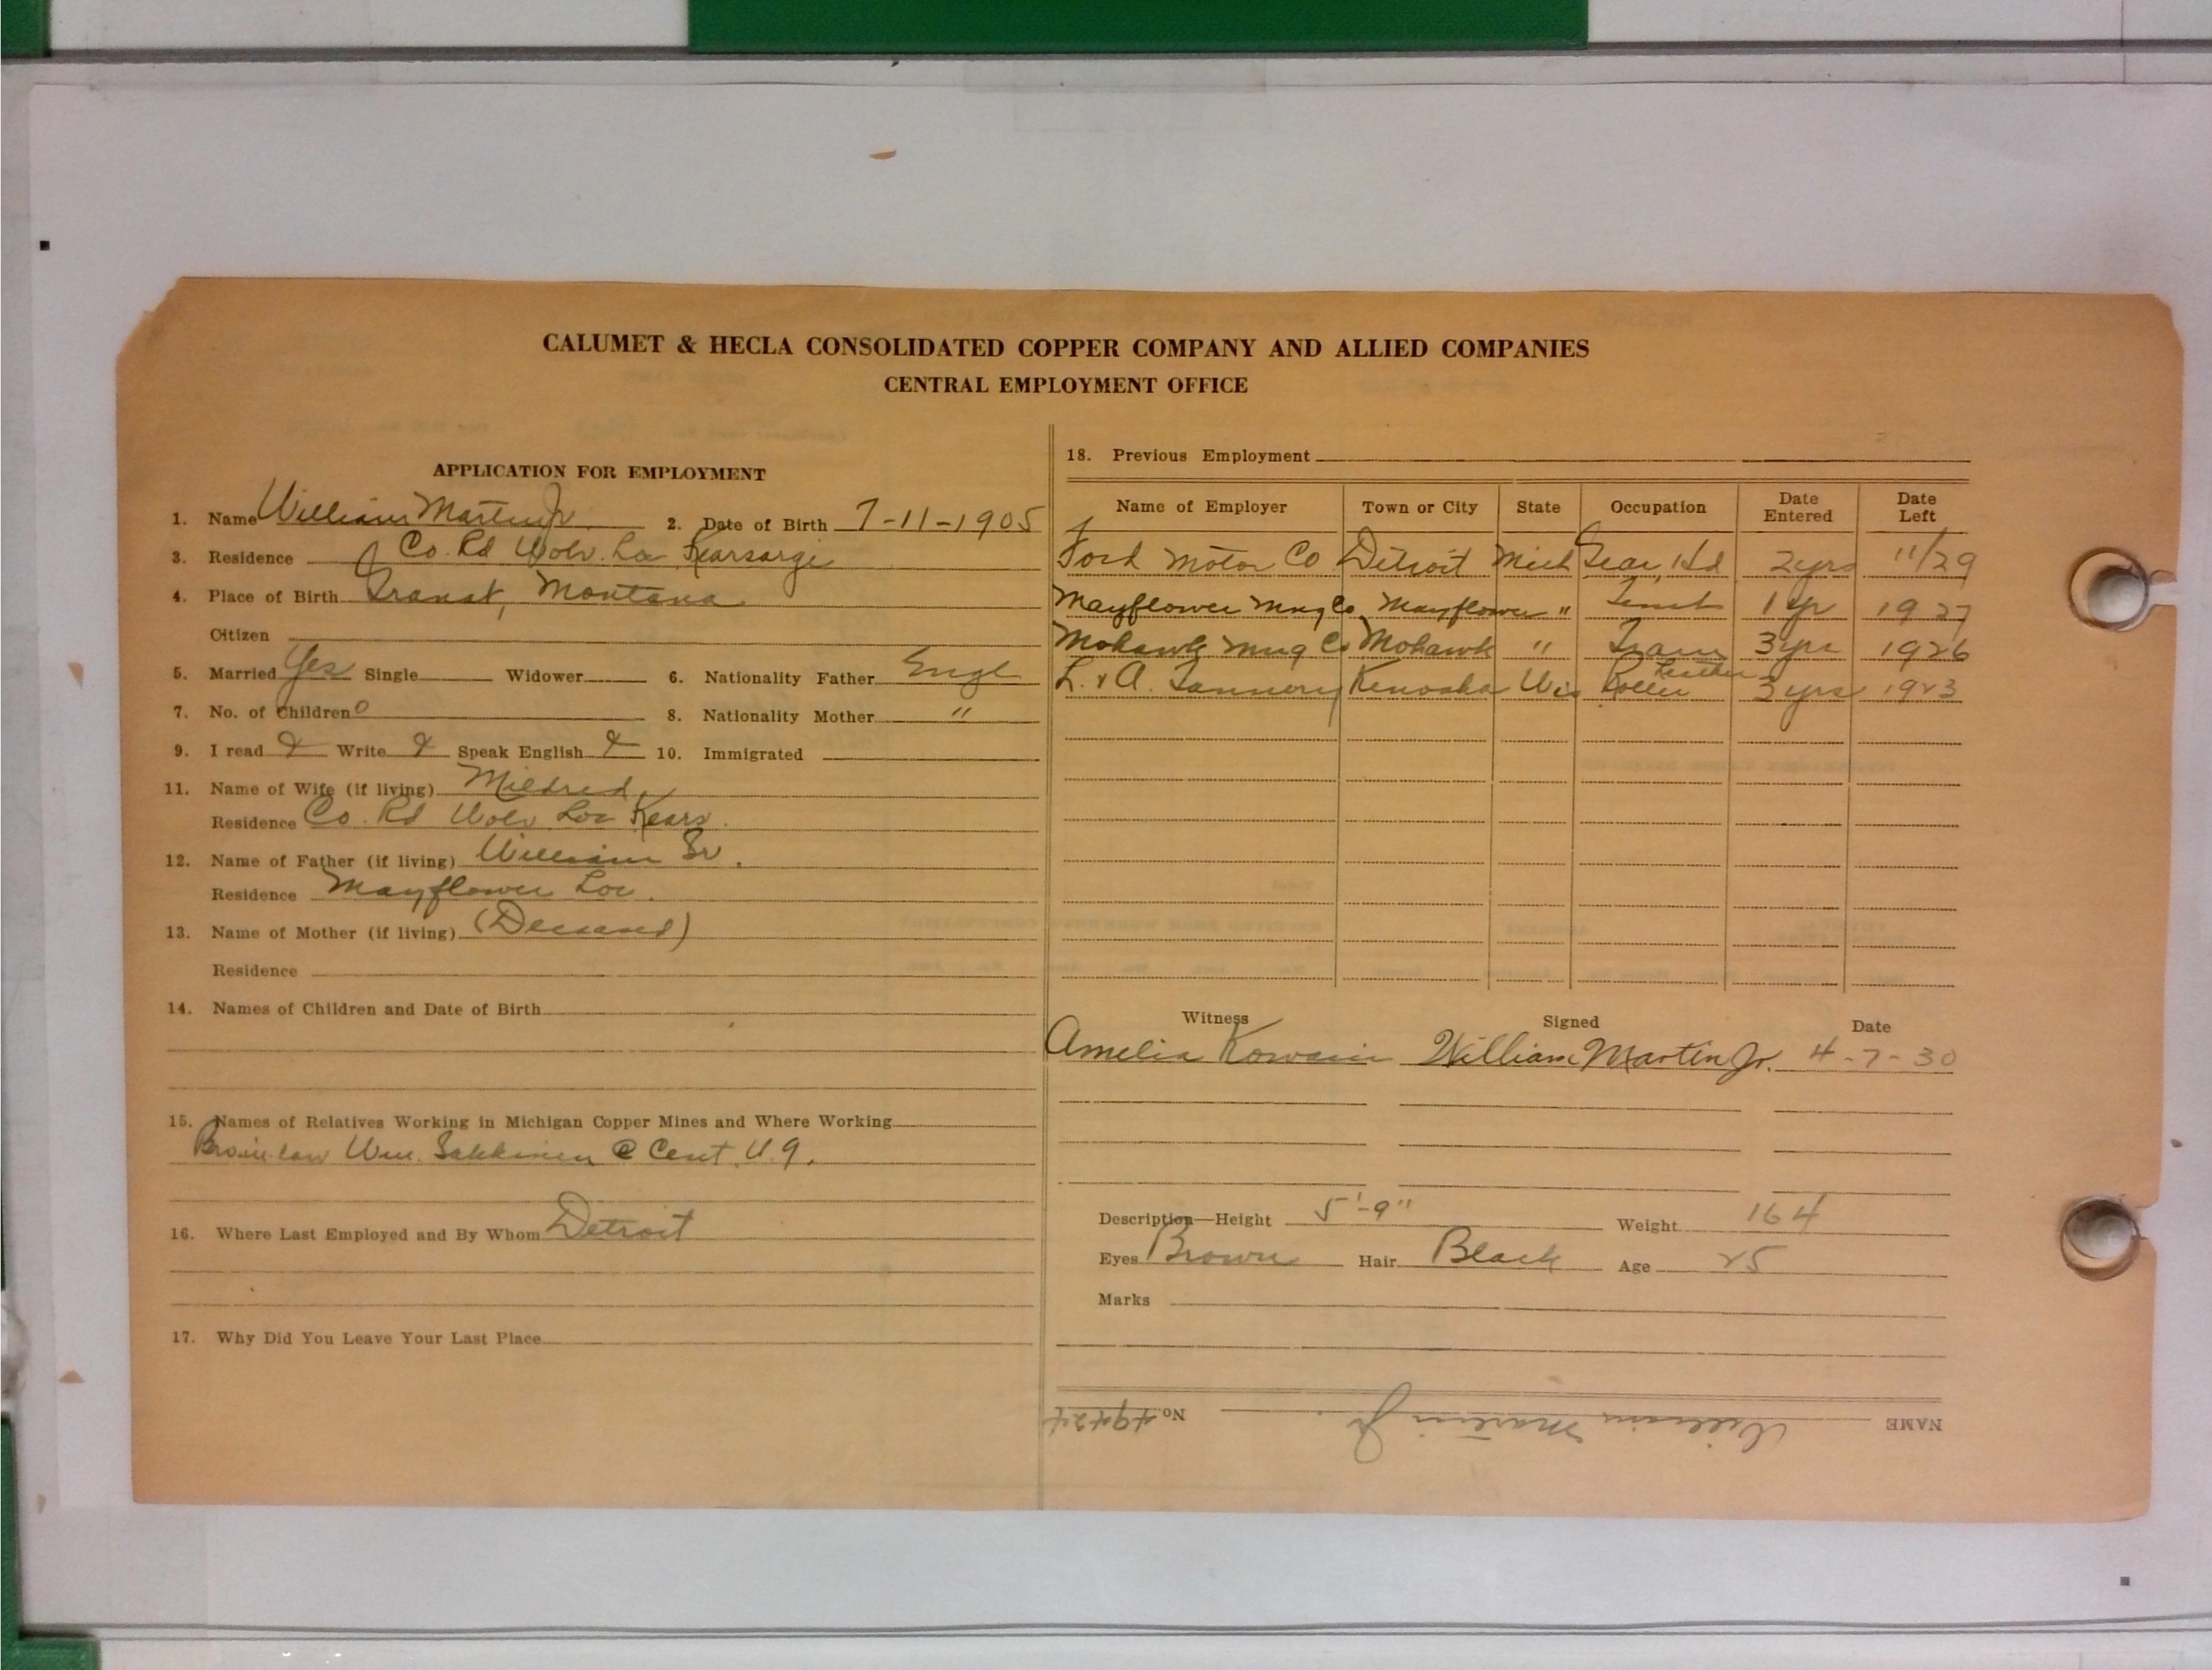 CALUMET & HECLA CONSOLIDATED COPPER COMPANY AND ALLIED COMPANIES
CENTRAL EMPLOYMENT OFFICE
APPLICATION FOR EMPLOYMENT
1. Name William Martin Jr. 2. Date of Birth 7-11-1905
3. Residence Co. Rd Wolv. Loc Kearsarge
4. Place of Birth Montana
Citizen
5. Married Yes Single Widower 6. Nationality Father Engl
7. No. of Children 0 8. Nationality Mother "
9. I read Write Speak English 10. Immigrated
11. Name of Wife (if living) Mildred
Residence Co. Rd Wolv Loc Kears.
12. Name of Father (if living) William Sr.
Residence Mayflower Loc.
13. Name of Mother (if living) (Deceased)
Residence
14. Names of Children and Date of Birth
15. Names of Relatives Working in Michigan Copper Mines and Where Working
Bro-in-law Wm. Sakkinen @ Cent. U.G.
16. Where Last Employed and By Whom Detroit
17. Why Did You Leave Your Last Place
18. Previous Employment
Name of Employer Town or City State Occupation Date Entered Date Left
Ford Motor Co Detroit Mich 2yrs 11/29
Mayflower Mng Co. Mayflower " 1 yr 1927
Mohawk Mng Co Mohawk " Tram 3yrs 1926
L. & A. Tannery Kenosha Wis Leather Roller 3 yrs 1923
Witness Signed Date
Amelia William Martin Jr. 4-7-30
Description—Height 5'-9" Weight 164
Eyes Brown Hair Black Age 25
Marks
NAME William Martin Jr. No. 49424